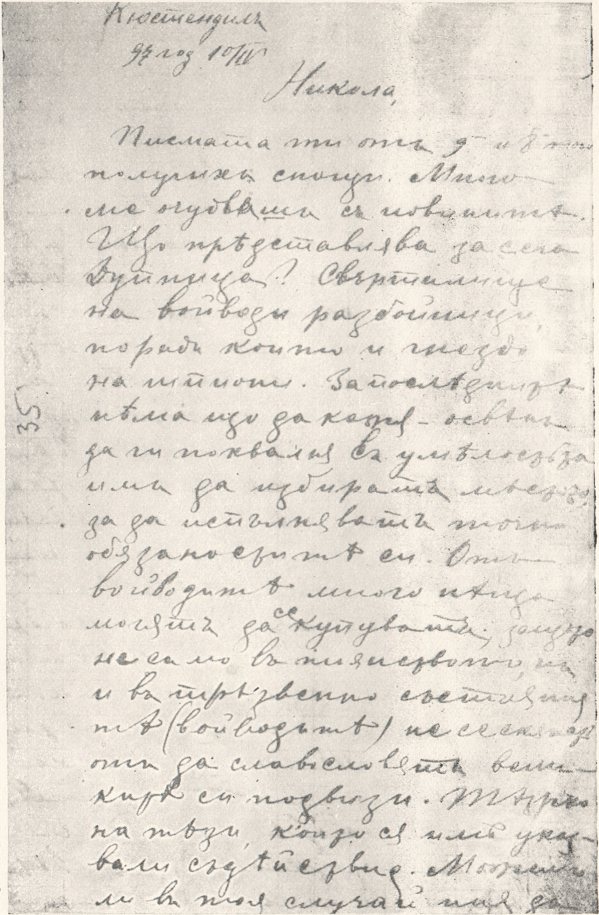 Кюстендилъ
97 год 10/IV
Никола,
Писмата ти отъ 5 и 8 того
получихъ снощи. Много
ме очудвашъ съ новинитѣ.
Що прѣдставлява за сега
Дупница? Свѣртилище
на войводи разбойници,
поради които и гнездо
на шпиони. За послѣднитѣ
нѣма що да кажа - освѣнъ
да ги похваля въ умѣлостьта
имъ да избиратъ мѣста,
за да испълняватъ точно
обязаноститѣ си. Отъ
войводитѣ много нѣща
могатъ да се купуватъ, защото
не само въ пиянството, но
и въ трѣзвенно състояния
тѣ (войводитѣ) не се
отъ да славословятъ вели-
китѣ си подвизи.
на тѣзи, които сѫ имъ ука-
вали съдѣйствие.
ли въ тоя случай ния да